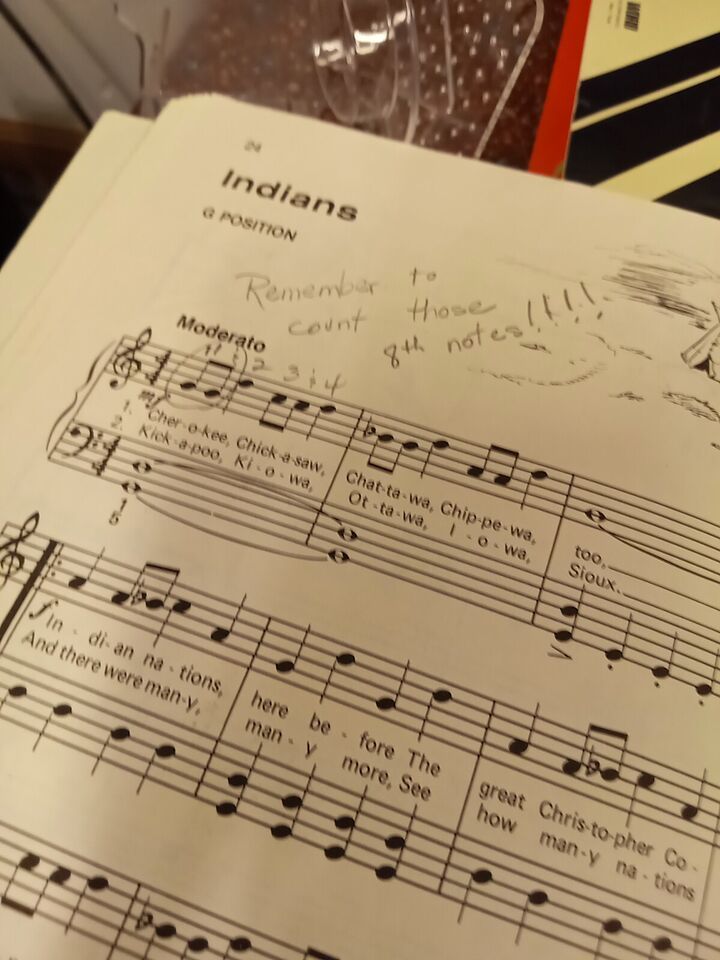 24
Indians
G POSITION
Remember to
count those
8th notes!!!!!
Moderato
2 3 + 4
mf
1. Cher-o-kee, Chick-a-saw, Chat-ta-wa, Chip-pe-wa, too,
2. Kick-a-poo, Ki-o-wa, Ot-ta-wa, I-o-wa, Sioux.
1
5
f In-di-an na-tions, here be-fore The great Chris-to-pher Co-
And there were man-y, man-y more, See how man-y na-tions